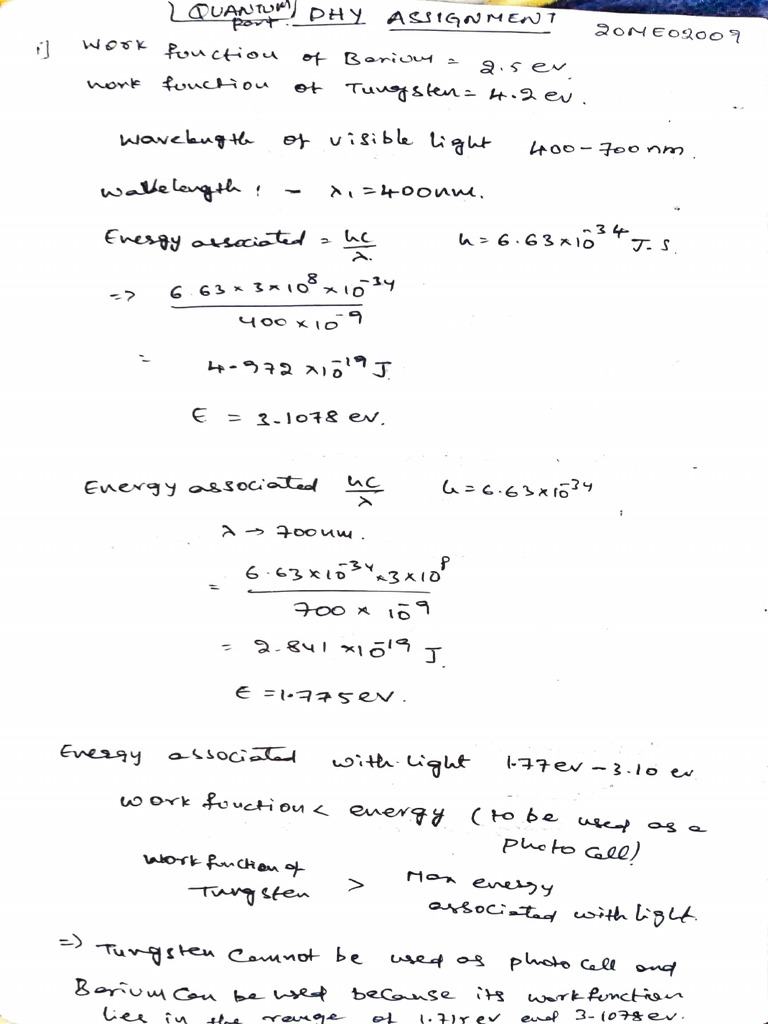 (QUANTUM) PHY ASSIGNMENT
part.
20ME02009
1] Work function of Barium = 2.5 ev.
work function of Tungsten = 4.2 ev.
Wavelength of visible light 400-700nm.
Wavelength : - λ₁ = 400nm.
Energy associated = hc/λ. h = 6.63×10⁻³⁴ J-S.
=> 6.63 × 3×10⁸ × 10⁻³⁴ / 400 × 10⁻⁹
= 4.972 ×10⁻¹⁹ J.
E = 3.1078 ev.
Energy associated hc/λ h = 6.63×10⁻³⁴
λ → 700nm.
= 6.63×10⁻³⁴ × 3×10⁸ / 700 × 10⁻⁹
= 2.841 ×10⁻¹⁹ J.
E = 1.775ev.
Energy associated with light 1.77ev - 3.10 ev
work function < energy (to be used as a
photo cell)
work function of
Tungsten > Max energy
associated with light.
=> Tungsten cannot be used as photo cell and
Barium can be used because its workfunction
lies in the range of 1.775ev and 3.1078ev.